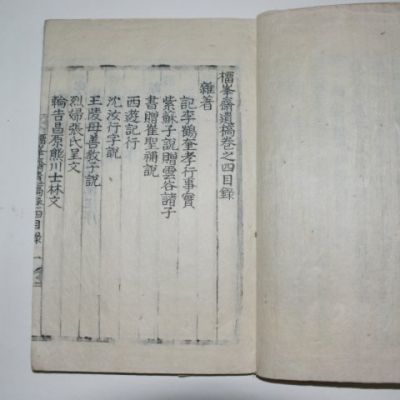 榴峯齋遺稿卷之四目錄
雜著
記李鶴奎孝行事實
紫蘇子說贈雲谷諸子
書贈崔聖補說
西遊記行
沈汝行字說
王陵母善教子說
烈婦張氏呈文
輪告昌原熊川士林文